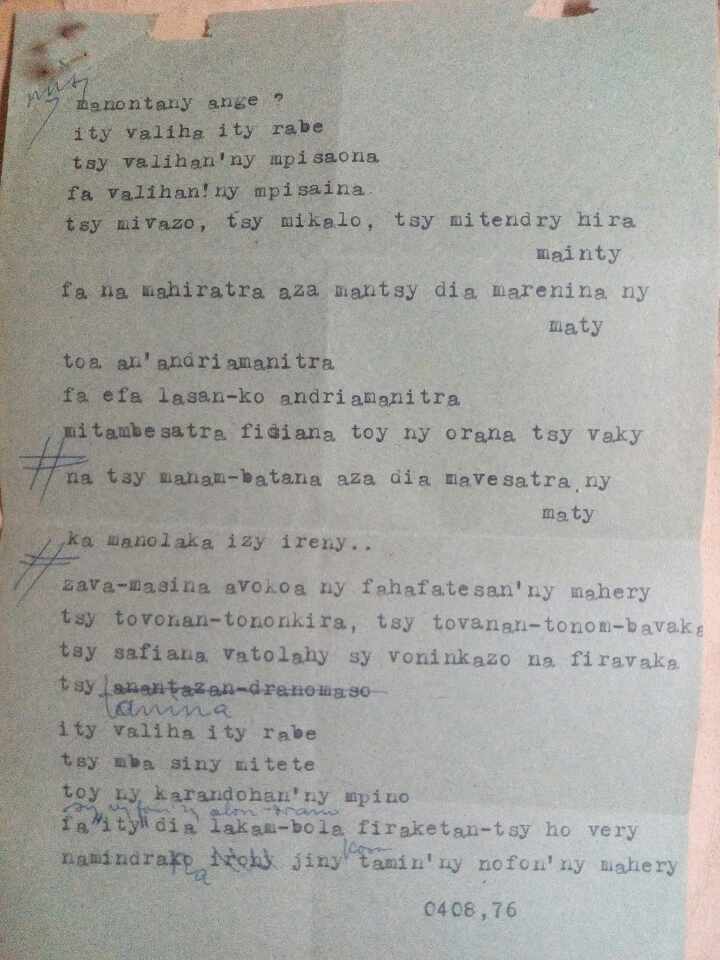 manontany ange ?
ity valiha ity rabe
tsy valihan'ny mpisaona
fa valihan!ny mpisaina
tsy mivazo, tsy mikalo, tsy mitendry hira
mainty
fa na mahiratra aza mantsy dia marenina ny
maty
toa an'andriamanitra
fa efa lasan-ko andriamanitra
mitambesatra fidiana toy ny orana tsy vaky
na tsy manam-batana aza dia mavesatra ny
maty
ka manolaka izy ireny..
zava-masina avokoa ny fahafatesan'ny mahery
tsy tovonan-tononkira, tsy tovanan-tonom-bavaka
tsy safiana vatolahy sy voninkazo na firavaka
tsy anantazan-dranomaso
tanina
ity valiha ity rabe
tsy mba siny mitete
toy ny karandohan'ny mpino
fa "ity" dia lakam-bola firaketan-tsy ho very
namindrako irony jiny tamin'ny nofon'ny mahery
0408,76